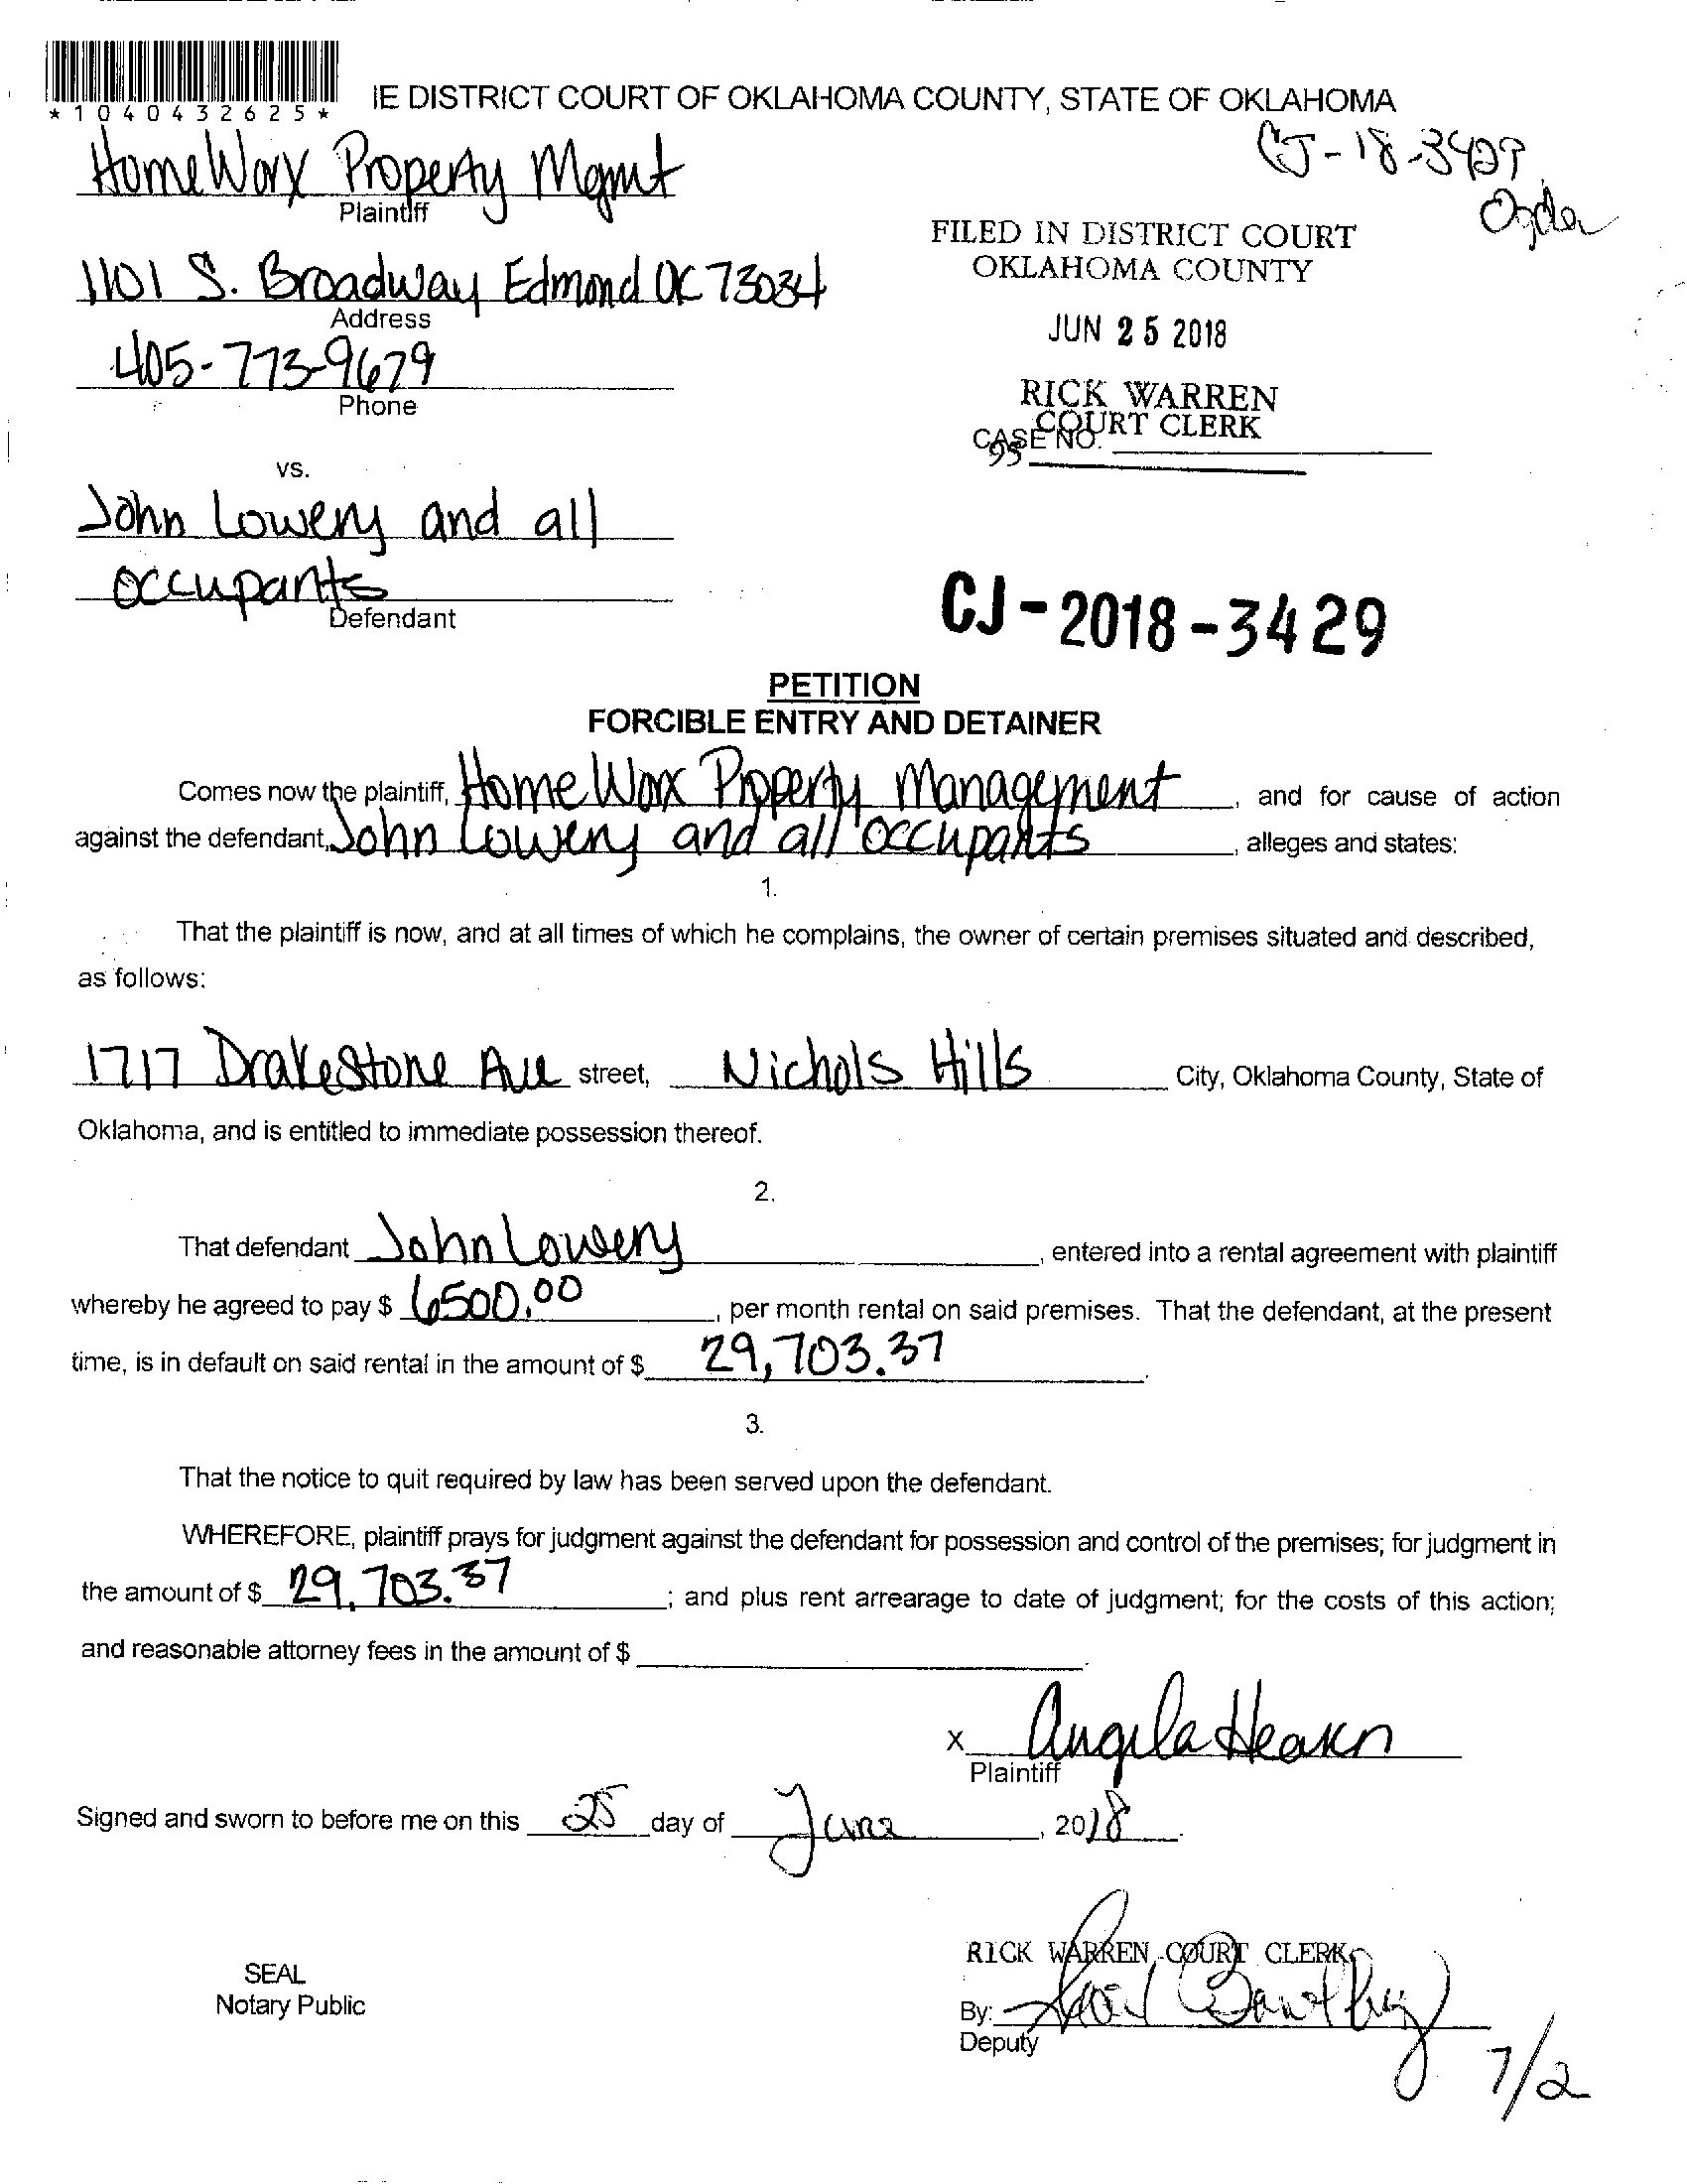 *1040432625*
IE DISTRICT COURT OF OKLAHOMA COUNTY, STATE OF OKLAHOMA
CJ-18-3429
HomeWorx Property Mgmt
Plaintiff
FILED IN DISTRICT COURT
OKLAHOMA COUNTY
1101 S. Broadway Edmond OK 73034
Address
JUN 25 2018
405-773-9679
Phone
RICK WARREN
COURT CLERK
CASE NO.
95
vs.
John Lowery and all
occupants
Defendant
CJ-2018-3429
PETITION
FORCIBLE ENTRY AND DETAINER
Comes now the plaintiff, HomeWorx Property Management, and for cause of action
against the defendant, John Lowery and all occupants, alleges and states:
1.
That the plaintiff is now, and at all times of which he complains, the owner of certain premises situated and described,
as follows:
1717 Drakestone Ave street, Nichols Hills City, Oklahoma County, State of
Oklahoma, and is entitled to immediate possession thereof.
2.
That defendant John Lowery, entered into a rental agreement with plaintiff
whereby he agreed to pay $ 6500.00, per month rental on said premises. That the defendant, at the present
time, is in default on said rental in the amount of $ 29,703.37.
3.
That the notice to quit required by law has been served upon the defendant.
WHEREFORE, plaintiff prays for judgment against the defendant for possession and control of the premises; for judgment in
the amount of $ 29,703.37; and plus rent arrearage to date of judgment; for the costs of this action;
and reasonable attorney fees in the amount of $ .
x Angela Hearn
Plaintiff
Signed and sworn to before me on this 25 day of June, 2018.
RICK WARREN, COURT CLERK
SEAL
Notary Public
By:
Deputy
7/2